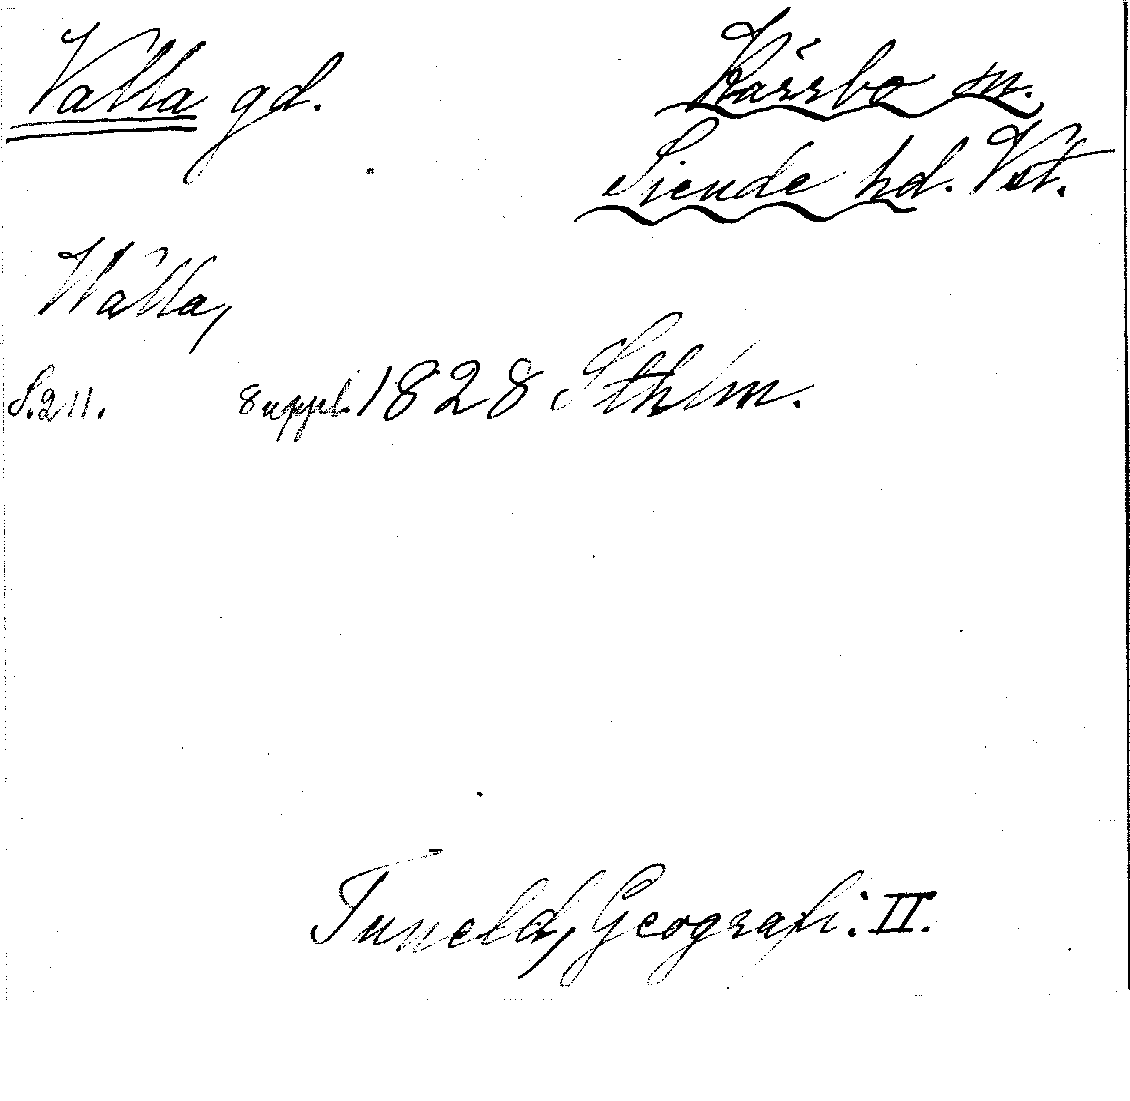 Valla gd.
Kärrbo sn.
Siende hd. Vstm.
Walla,
S. 211. 8 uppl. 1828 Sthlm.
Tuneld, Geografi. II.